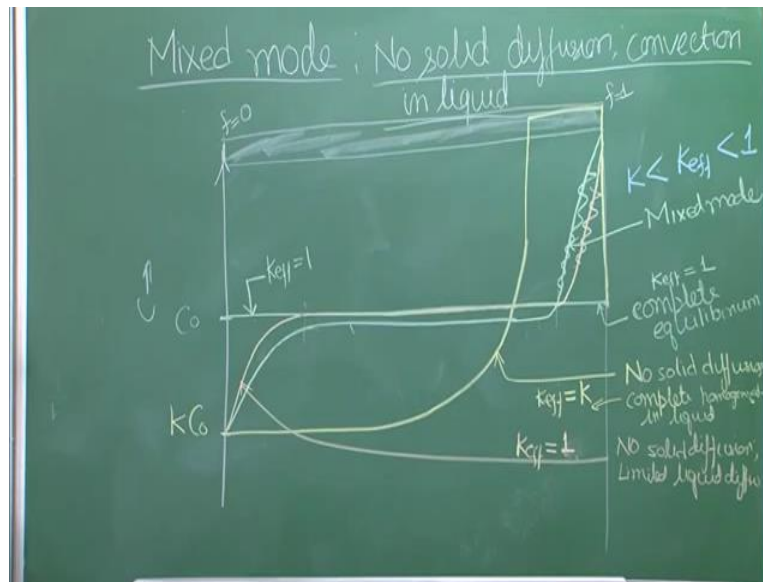 Mixed mode : No solid diffusion, convection
in liquid
f=0
f=1
K < Keff < 1
Mixed mode
Keff = 1
Keff = 1
complete
equilibrium
C
C₀
No solid diffusion
Keff = K
complete
in liquid
KC₀
Keff = 1
No solid diffusion,
Limited liquid